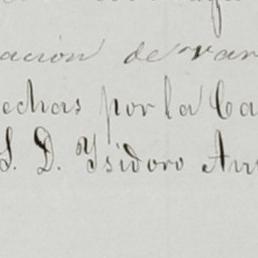 acion de var
echas por la Ca
S. D. Ysidoro An